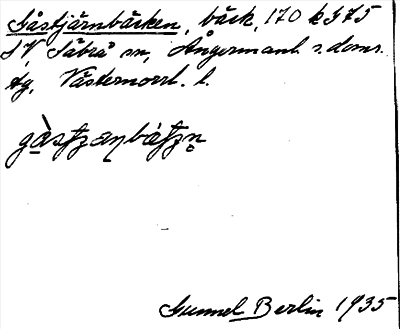 Gåstjärnbäcken, bäck, 170 k f 75
SV Säbrå sn, Ångermanl. s. doms.
tg, Västernorrl. l.
Gunnel Berlin 1935